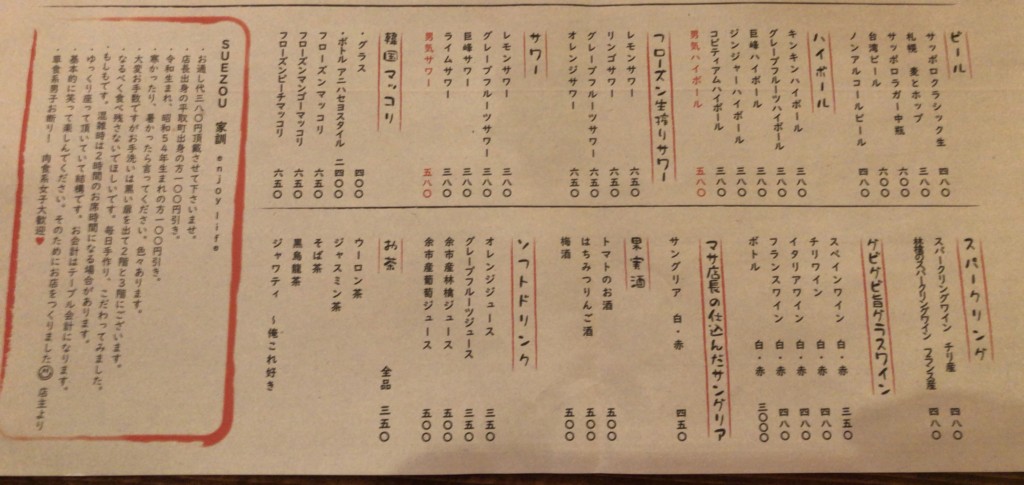 ビール
サッポロクラシック生 四八〇
札幌 麦とホップ 三八〇
サッポロラガー中瓶 六〇〇
台湾ビール 六〇〇
ノンアルコールビール 四八〇
ハイボール
キンキンハイボール 三八〇
グレープフルーツハイボール 三八〇
巨峰ハイボール 三八〇
ジンジャーハイボール 三八〇
コピティアムハイボール 三八〇
男気ハイボール 五八〇
フローズン生搾りサワー
レモンサワー 六五〇
リンゴサワー 六五〇
グレープフルーツサワー 六五〇
オレンジサワー 六五〇
サワー
レモンサワー 三八〇
グレープフルーツサワー 三八〇
巨峰サワー 三八〇
ライムサワー 三八〇
男気サワー 五八〇
韓国マッコリ
・グラス 四〇〇
・ボトル アニハセヨスタイル 二四〇〇
フローズンマッコリ 六五〇
フローズンマンゴーマッコリ 六五〇
フローズンピーチマッコリ 六五〇
スパークリング
スパークリングワイン チリ産 四八〇
林檎のスパークリングワイン フランス産 四八〇
グビグビ旨グラスワイン
スペインワイン 白・赤 三五〇
チリワイン 白・赤 四八〇
イタリアワイン 白・赤 四八〇
フランスワイン 白・赤 四八〇
ボトル 白・赤 三〇〇〇
マサ店長の仕込んだサングリア
サングリア 白・赤 四五〇
果実酒
トマトのお酒 五〇〇
はちみつりんご酒 五〇〇
梅酒 五〇〇
ソフトドリンク
オレンジジュース 三五〇
グレープフルーツジュース 三五〇
余市産林檎ジュース 五〇〇
余市産葡萄ジュース 五〇〇
お茶 全品 三五〇
ウーロン茶
ジャスミン茶
そば茶
黒烏龍茶
ジャワティ 〜俺これ好き
SUEZOU 家訓 enjoy life
・お通し代三八〇円頂戴させて下さいませ。
・店長出身の平取町出身の方一〇〇円引き。
・令和生まれ、昭和54年生まれの方一〇〇円引き。
・寒かったり、暑かったら言ってください。色々あります。
・大変お手数ですがお手洗いは黒い扉を出て2階と3階にございます。
・なるべく食べ残さないでほしいです。毎日手作り、こだわってみました。
・もしもです。混雑時は2時間のお席時間になる場合があります。
・ゆっくり座って頂いていて結構です。お会計はテーブル会計になります。
・基本的に笑って楽しんでください。そのためにお店をつくりました 店主より
・草食系男子お断りー 肉食系女子大歓迎♥